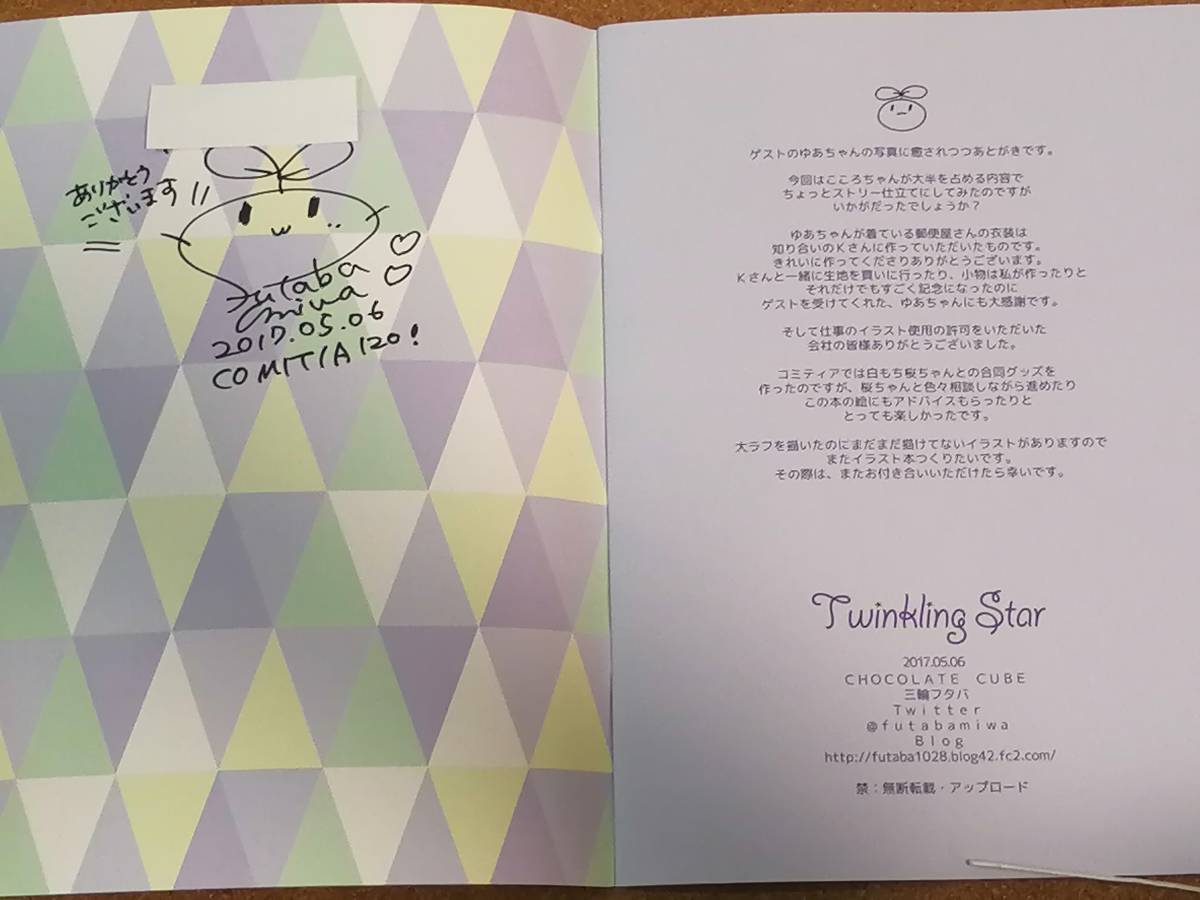 ありがとう
ございます
Futaba
miwa
2017.05.06
COMITIA120!
ゲストのゆあちゃんの写真に癒されつつあとがきです。
今回はこころちゃんが大半を占める内容で
ちょっとストリー仕立てにしてみたのですが
いかがだったでしょうか？
ゆあちゃんが着ている郵便屋さんの衣装は
知り合いのKさんに作っていただいたものです。
きれいに作ってくださりありがとうございます。
Kさんと一緒に生地を買いに行ったり、小物は私が作ったりと
それだけでもすごく記念になったのに
ゲストを受けてくれた、ゆあちゃんにも大感謝です。
そして仕事のイラスト使用の許可をいただいた
会社の皆様ありがとうございました。
コミティアでは白もち桜ちゃんとの合同グッズを
作ったのですが、桜ちゃんと色々相談しながら進めたり
この本の絵にもアドバイスもらったりと
とっても楽しかったです。
大ラフを描いたのにまだまだ描けてないイラストがありますので
またイラスト本つくりたいです。
その際は、またお付き合いいただけたら幸いです。
Twinkling Star
2017.05.06
CHOCOLATE CUBE
三輪フタバ
Twitter
@futabamiwa
Blog
http://futaba1028.blog42.fc2.com/
禁：無断転載・アップロード